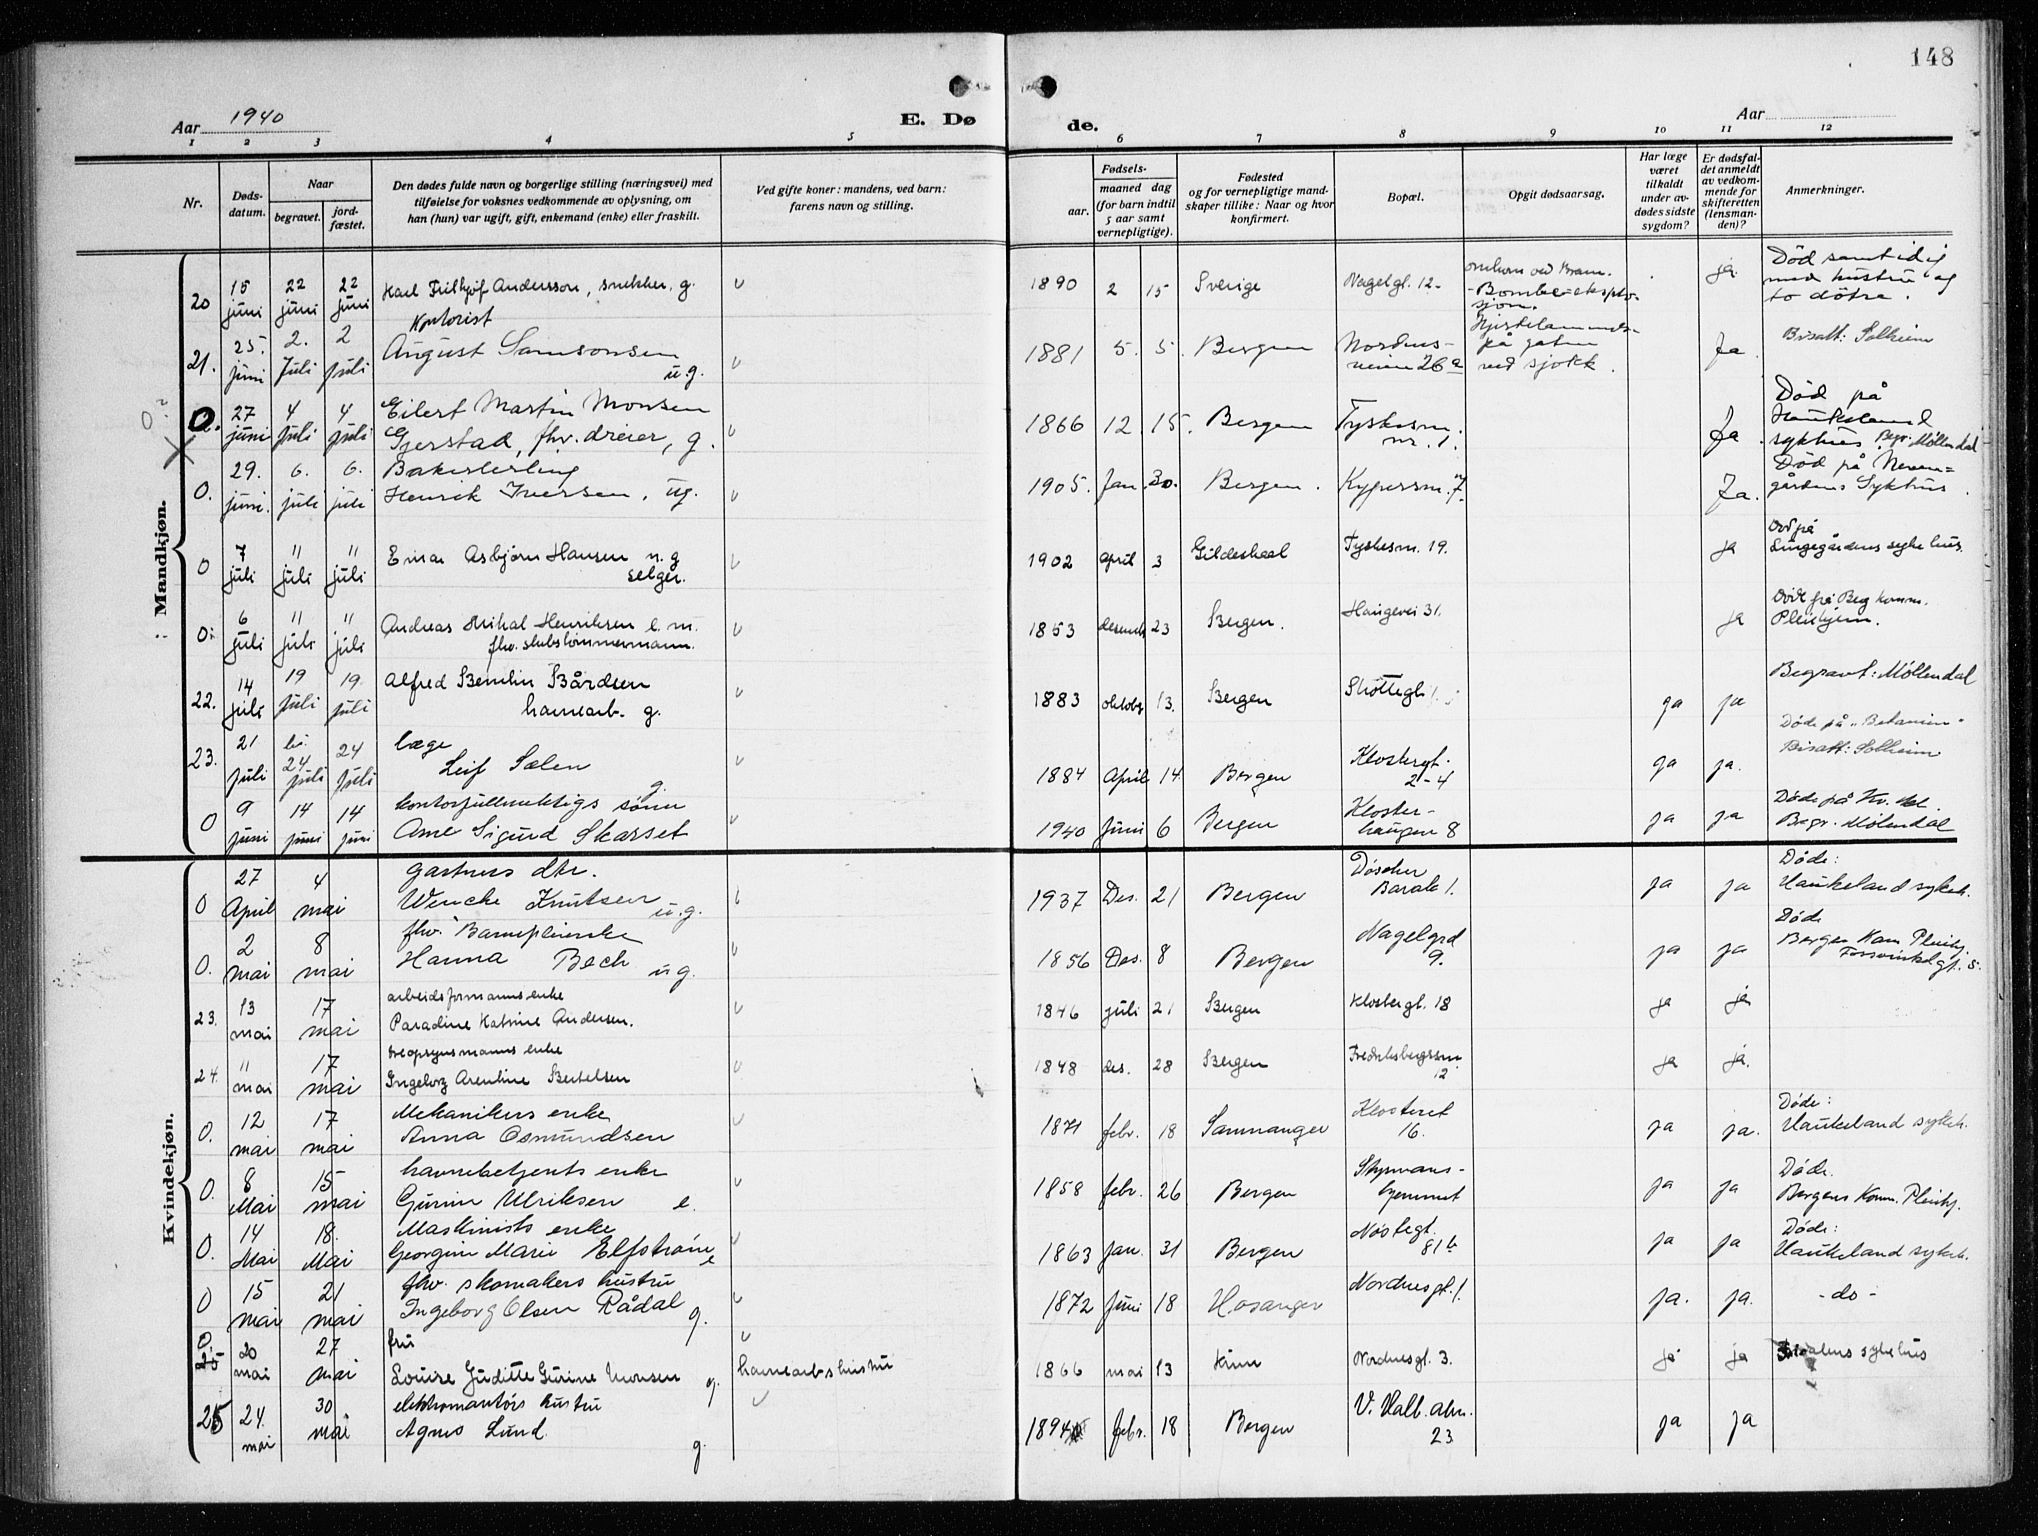 148
Aar 1940
E. Dø
de.
Aar
1 2 3 4 5 6 7 8 9 10 11 12
Nr.
Døds-
datum.
Naar
begravet.
jord-
fæstet.
Den dødes fulde navn og borgerlige stilling (næringsvei) med
tilføielse for voksnes vedkommende av oplysning, om
han (hun) var ugift, gift, enkemand (enke) eller fraskilt.
Ved gifte koner: mandens, ved barn:
farens navn og stilling.
Fødsels-
aar.
maaned dag
(for barn indtil
5 aar samt
vernepligtige).
Fødested
og for vernepligtige mand-
skaper tillike: Naar og hvor
konfirmert.
Bopæl.
Opgit dødsaarsag.
Har læge
været
tilkaldt
under av-
dødes sidste
sygdom?
Er dødsfal-
det anmeldt
av vedkom-
mende for
skifteretten
(lensman-
den)?
Anmerkninger.
Mandkjøn.
20 15 juni 22 juni 22 juni Karl Frithjof Andersson, snekker, g. 1890 2 15 Sverige Nagelgt. 12 omkom ved
Bombe-eksplo-
sjon. ja Død samtidig
med hustru og
to døtre.
21. 25. juni 2. Juli 2 juli Kontorist
August Samsonsen
u.g. 1881 5. 5. Bergen Nordnes-
veien 26a
på gaten
ved sjokk. Ja Bisatt: Solheim
0. 27 juni 4 juli 4 juli Eilert Martin Monsen
Gjerstad, fhv. dreier, g. 1866 12. 15. Bergen Tyskesm.
nr. 1. Ja Død på
Haukeland
sykhus Begr. Møllendal
0. 29. juni. 6. juli 6. juli Bakerlerling
Henrik Iversen, ug. 1905. Jan. 30. Bergen. Kypersm. 7. Ja. Død på Neven-
gårdens Sykhus.
0 7 juli 11 juli 11 juli Einar Asbjørn Hansen n. g
selger. 1902 april 3 Gildeskaal Tyskesm. 19. ja Død på
Lungegårdens sykehus.
0: 6 juli 11 juli 11 juli Andreas Mikal Henriksen e. m.
fhv. skibstømmermann. 1853 desemb. 23 Bergen. Haugevei 31. ja Død på Berg. Komm.
Pleiehjem.
22. 14 juli 19 juli 19. juli Alfred Bendin Bårdsen
havnearb. g. 1883 oktobr 13. Bergen Skottegt. ja ja Begravt: Møllendal
23. 21 juli bi. 24 juli 24 juli læge
Leif Sælen
g. 1884 April 14. Bergen Klostergt.
2-4 ja ja. Døde på "Betanien"
Bisatt: Solheim
0 9 juni 14 juni 14 juni kontorfullmektigs sønn
Arne Sigurd Skarset 1940 Juni 6 Bergen Kloster-
haugen 8 ja ja Døde på Kv. kl.
Begr. Møllendal
Kvindekjøn.
0 27 April 4 mai gartners dtr.
Wenche Knutsen u.g. 1937 Des. 21 Bergen
Barak 1. ja ja Døde:
Haukeland sykeh.
0. 2 mai 8 mai fhv. Barnepleierske
Hanna Bech ug. 1856 Des. 8 Bergen Nagelgrd
9. ja ja Døde
Bergen Kom. Pleiehj.
0 23. 13 mai 17 mai arbeidsformanns enke
Paradine Katrine Andersen. 1846 juli 21 Bergen Klostergt. 18 ja ja
24. 11 mai 17 mai treopsynsmanns enke
Ingeborg Arentine Bertelsen 1848 des. 28 Bergen Fredriksbergssm.
12 ja ja.
0. 12 mai 17 mai Mekanikers enke
Anna Osmundsen 1871 febr. 18 Samnanger Klosteret
16. ja ja. Døde:
Haukeland sykeh.
0. 8 Mai 15 mai havnebetjents enke
Gurine Ulriksen e. 1858 febr. 26 Bergen Styrmans-
hjemmet ja ja Døde.
Bergens Kom. Pleiehj.
0. 14 Mai 18. Mai Maskinists enke
Georgine Marie Elfstrøm
e 1863 jan. 31 Bergen Nøstegt.
81b ja ja Døde:
Haukeland sykeh.
0 15 mai 21 mai fhv. skomakers hustru
Ingeborg Olsen Rådal g. 1872 Juni 18 Hosanger Nordnesgt. 1. ja. ja. - do -
0. 25 20 mai 27 mai fru
Louise Juditte Gurine Monsen g. havnearb-s hustru 1866 mai 13 Kinn Nordnesgt. 3. ja ja sykehus
25 24. mai 30 mai elektromontørs hustru
Agnes Lund. g. 1894 febr. 18 Bergen V. Halb. alm.
23 ja ja